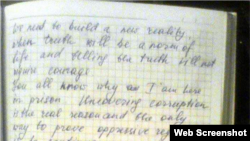 We need to build a new reality,
when truth will be a norm of
life and telling the truth will not
require courage
You all know why am I am here
in prison. Uncovering corruption
is the real reason and the only
way to prove oppressive reg
Web Screenshot